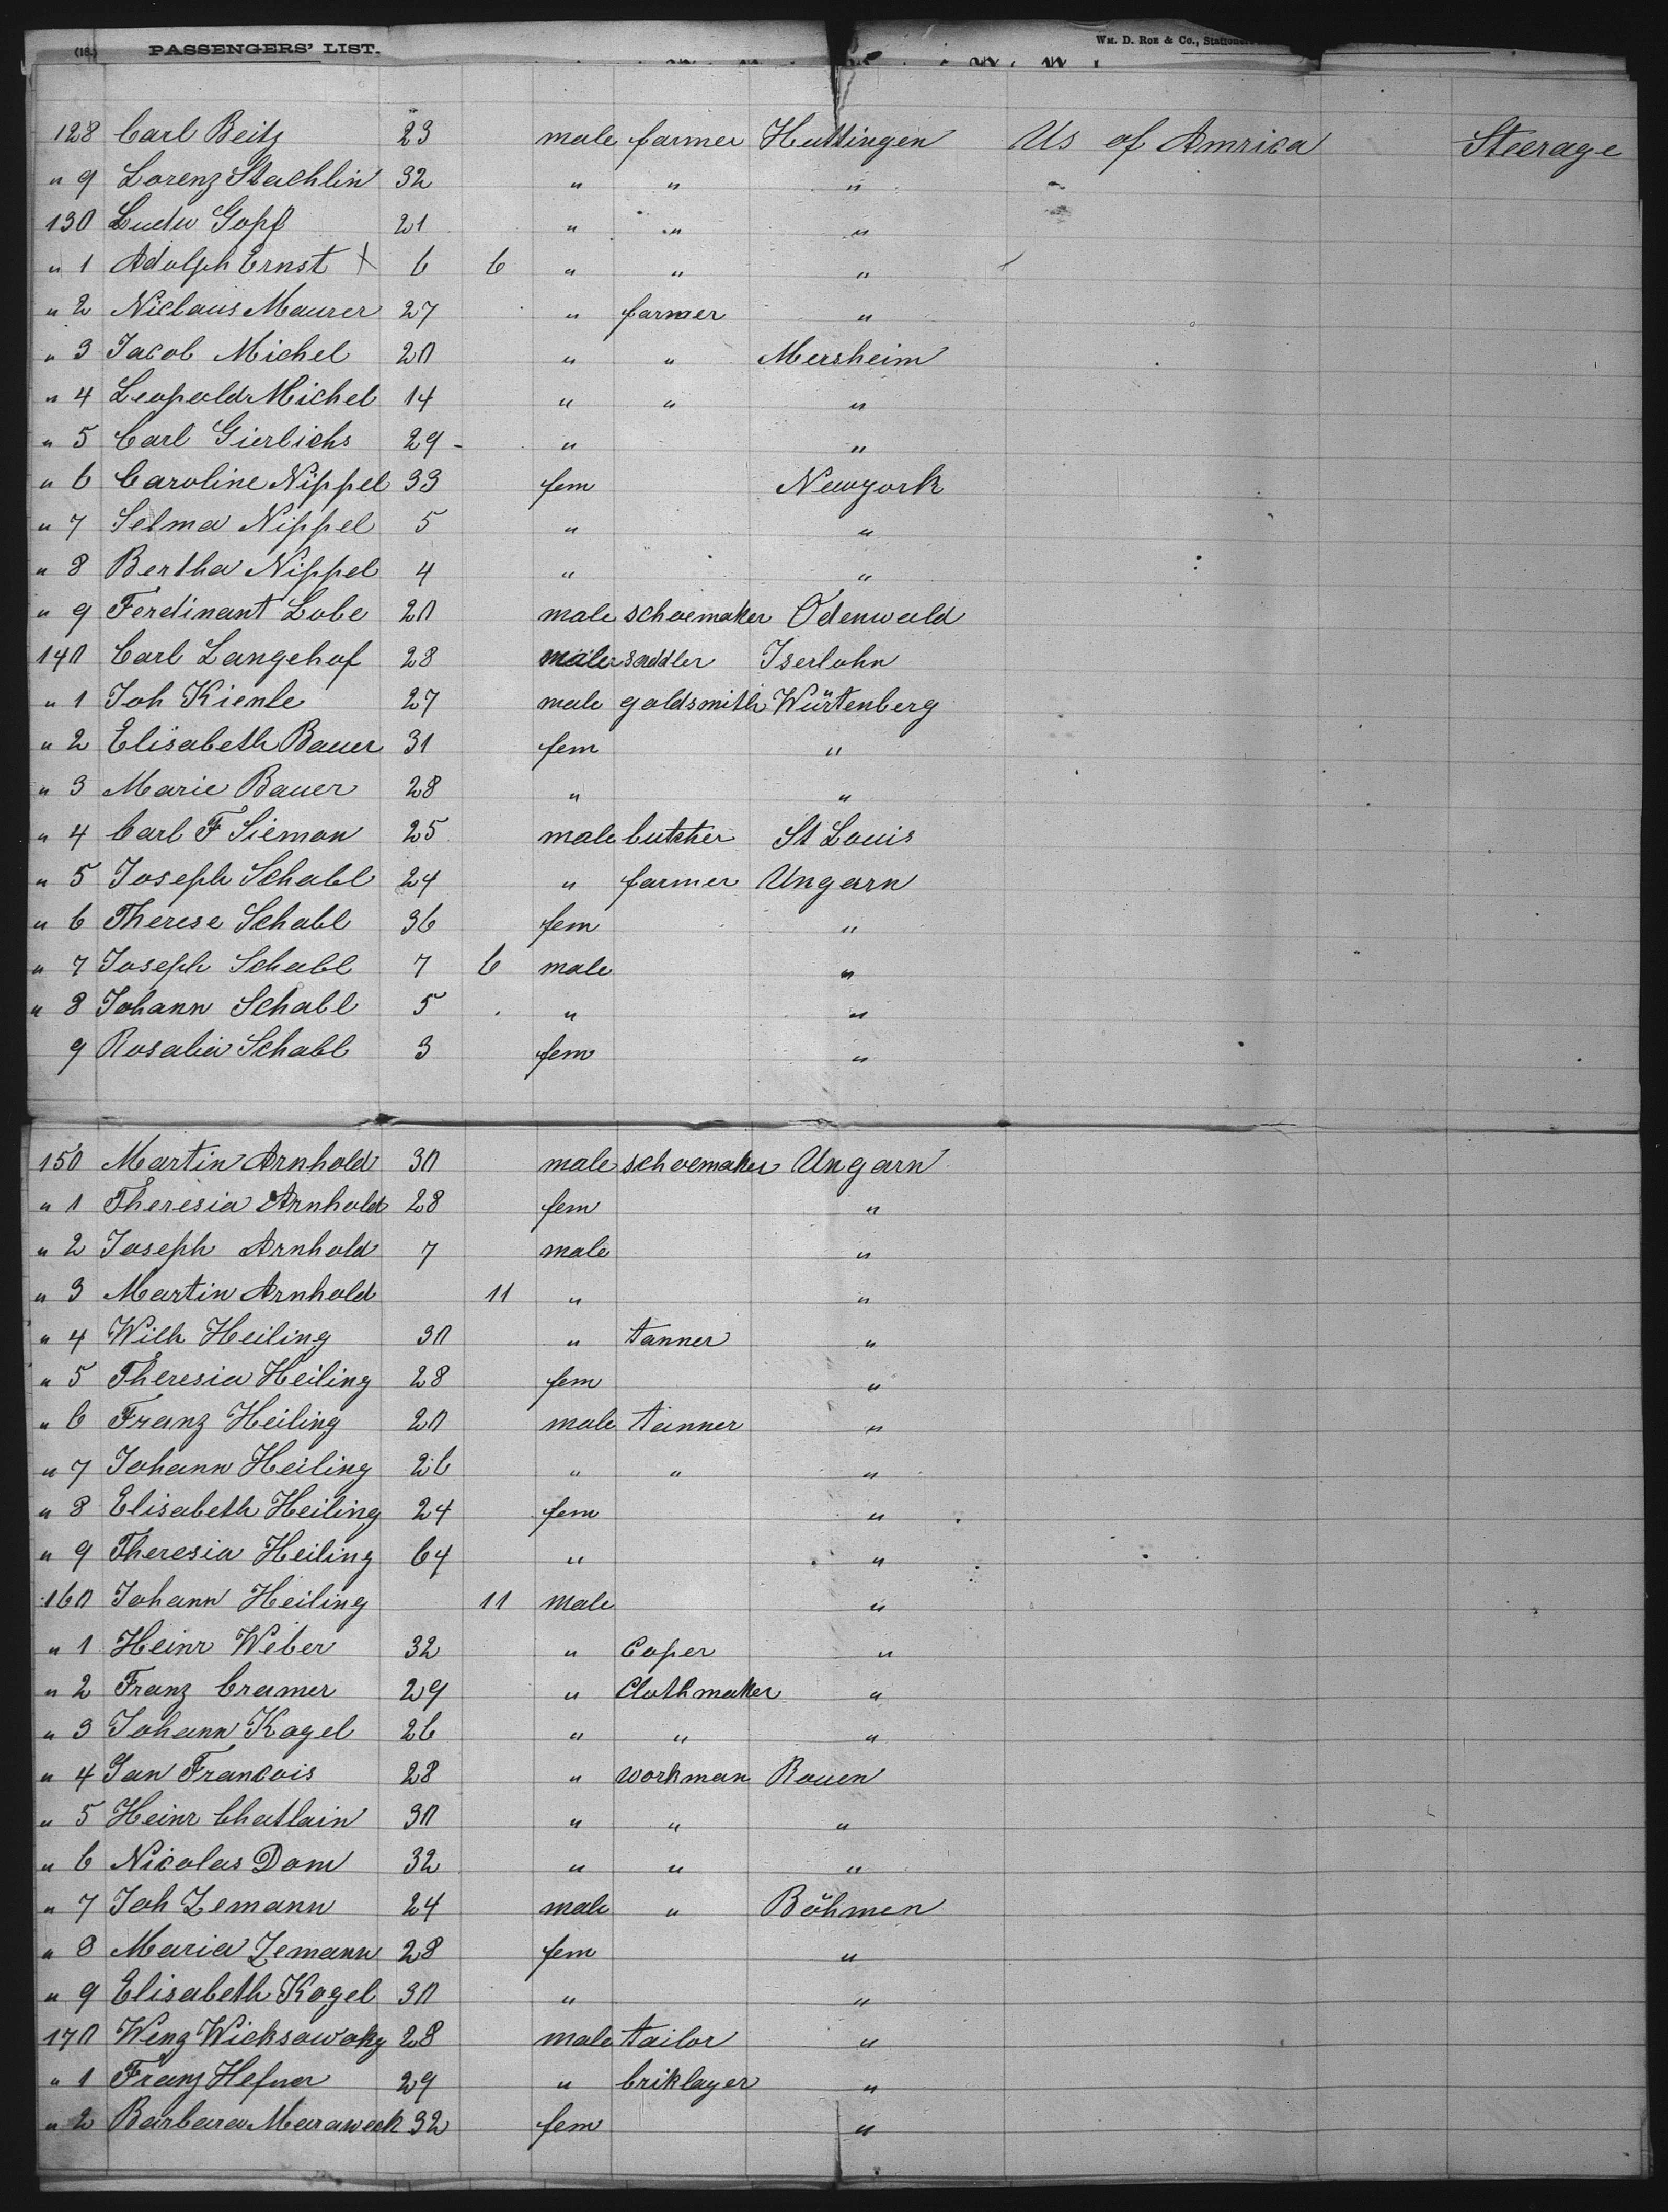 (18.) PASSENGERS' LIST. WM. D. ROE & CO., Stationers
128 Carl Beitz 23 male farmer Huttingen Us of Amrica Steerage
" 9 Lorenz Stachlin 32 " " "
130 Ludw Gopf 21 " " "
" 1 Adolph Ernst X 6 6 " " "
" 2 Niclaus Maurer 27 " farmer "
" 3 Jacob Michel 20 " " Mersheim
" 4 Leopold Michel 14 " " "
" 5 Carl Gierlichs 29 - " "
" 6 Caroline Nippel 33 fem Newyork
" 7 Selma Nippel 5 " "
" 8 Bertha Nippel 4 " "
" 9 Ferdinant Lobe 20 male schoemaker Odenwald
140 Carl Langehof 28 male saddler Iserlohn
" 1 Joh Kienle 27 male goldsmith Würtenberg
" 2 Elisabeth Bauer 31 fem "
" 3 Marie Bauer 28 " "
" 4 Carl F Siemon 25 male butcher St Louis
" 5 Joseph Schabl 24 " farmer Ungarn
" 6 Therese Schabl 36 fem "
" 7 Joseph Schabl 7 6 male "
" 8 Johann Schabl 5 " "
9 Rosalia Schabl 3 fem "
150 Martin Arnhold 30 male schoemaker Ungarn
" 1 Theresia Arnhold 28 fem "
" 2 Joseph Arnhold 7 male "
" 3 Martin Arnhold 11 " "
" 4 Wilh Heiling 30 " tanner "
" 5 Theresia Heiling 28 fem "
" 6 Franz Heiling 20 male tanner "
" 7 Johann Heiling 26 " " "
" 8 Elisabeth Heiling 24 fem "
" 9 Theresia Heiling 64 " "
160 Johann Heiling 11 male "
" 1 Heinr Weber 32 " Coper "
" 2 Franz Cramer 29 " Clothmaker "
" 3 Johann Kogel 26 " " "
" 4 Jan Francois 28 " workman Rouen
" 5 Heinr Chatlain 30 " " "
" 6 Nicolas Dom 32 " " "
" 7 Joh Zemann 24 male " Böhmen
" 8 Maria Zemann 28 fem "
" 9 Elisabeth Kogel 30 " "
170 Wenz Wicksawoky 28 male tailor "
" 1 Franz Hefner 29 " briklayer "
" 2 Barbara Maraweck 32 fem "